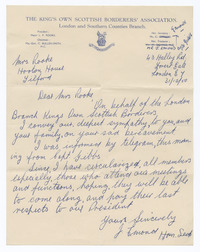 THE KING'S OWN SCOTTISH BORDERERS' ASSOCIATION.
London and Southern Counties Branch.
63 Halley Rd
Forest Gate
London E7
Mrs Rooke
House
Telford
Dear Mrs Rooke
On behalf of the London
Branch King's Own Scottish Borderers
I convey our deepest sympathy to you, and
your family, on your sad bereavement
I was informed by telegram, this mor
ning from Capt Gibbs
Since I have circularized, all members
especially, those who attend our meetings
and functions, hoping they will be able
to come along, and pay their last
respects to our President
Yours Sincerely
J
Hon. Sec